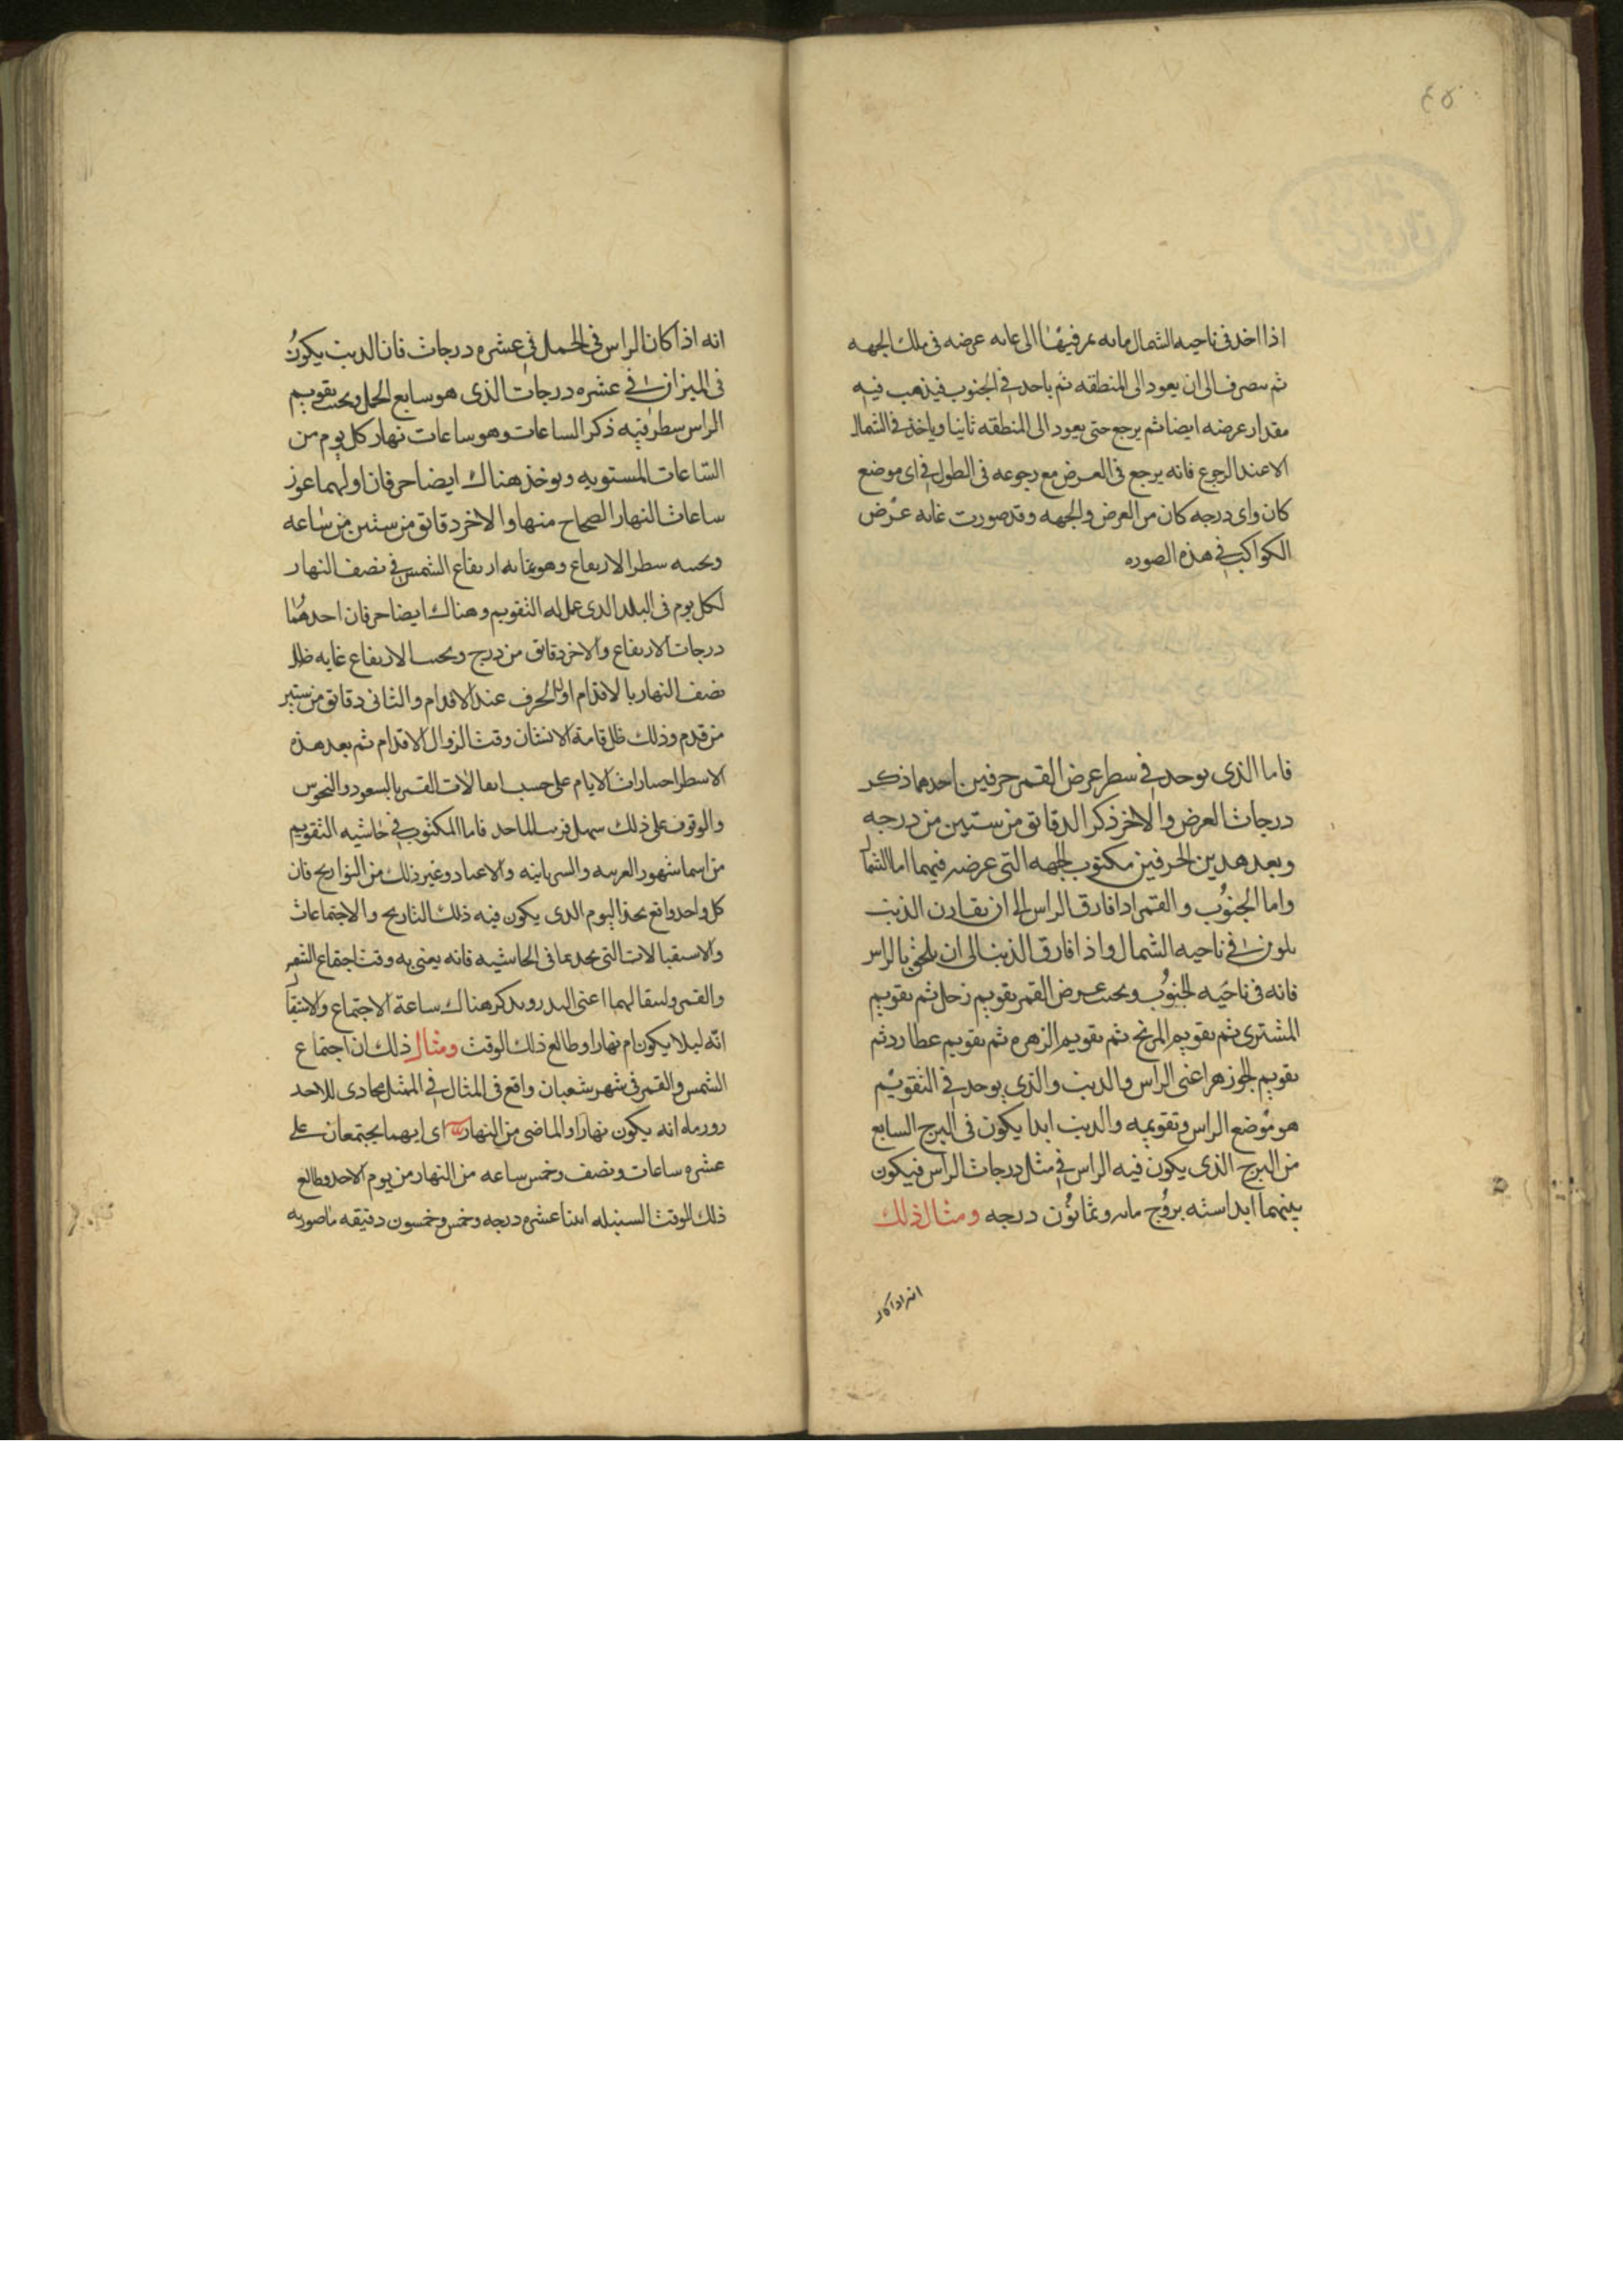 ٤٥
اذا اخذ فى ناحيه الشمال فانه يمر فيها الى غايه عرضه فى تلك الجهه
ثم ينصرف الى ان يعود الى المنطقه ثم ياخذ فى الجنوب فيذهب فيه
مقدار عرضه ايضا ثم يرجع حتى يعود الى المنطقه ثانيا وياخذ فى الشمال
الا عند الرجوع فانه يرجع فى العرض مع رجوعه فى الطول فى اى موضع
كان واى درجه كان من العرض والجهه وقد صورت غايه عرض
الكواكب فى هذه الصوره
فاما الذى يوجد فى سطر عرض القمر حرفين احدهما ذكر
درجات العرض والاخر ذكر الدقائق من ستين من درجه
وبعد هدين الحرفين مكتوب الجهه التى عرضه فيهما اما الشمال
واما الجنوب والقمر ادا فارق الراس الى ان يقارن الذنب
يكون فى ناحيه الشمال واذا فارق الذنب الى ان يلحق بالراس
فانه فى ناحيه الجنوب وبجنب عرض القمر تقويم زحل ثم تقويم
المشترى ثم تقويم المريخ ثم تقويم الزهره ثم تقويم عطارد ثم
تقويم الجوزهر اعنى الراس والذنب والذى يوجد فى التقويم
هو موضع الراس وتقويمه والذنب ابدا يكون فى البرج السابع
من البرج الذى يكون فيه الراس فى مثل درجات الراس فيكون
بينهما ابدا سته بروج مايه وثمانون درجه ومثال ذلك
انه اذا كان
انه اذا كان الراس فى الحمل فى عشره درجات فان الذنب يكون
فى الميزان فى عشره درجات الذى هو سابع الحمل وبجنب تقويم
الراس سطر فيه ذكر الساعات وهو ساعات نهار كل يوم من
الساعات المستويه ويوخذ هناك ايضا حرفان اولهما عوز
ساعات النهار الصحاح منها والاخر دقائق من ستين من ساعه
وبجنبه سطر الارتفاع وهو نهايه ارتفاع الشمس فى نصف النهار
لكل يوم فى البلد الدى عمل له التقويم وهناك ايضا حرفان احدهما
درجات الارتفاع والاخر دقائق من درج وبجنب الارتفاع غايه ظل
نصف النهار بالاقدام اول الحرف عند الاقدام والثانى دقائق من ستين
من قدم وذلك ظل قامة الانسان وقت الزوال الاقدام ثم بعد هذه
الاسطر اختيارات الايام على حسب اتصالات القمر بالسعود والنحوس
والوقوف على ذلك سهل قريب الماخذ فاما المكتوب فى حاشيه التقويم
من اسما شهور العربيه والسريانيه والاعياد وغير ذلك من التواريخ فان
كل واحد واقع بحذا اليوم الدى يكون فيه ذلك التاريخ والاجتماعات
والاستقبالات التى تجدها فى الحاشيه فانه يعنى به وقت اجتماع الشمس
والقمر واستقبالهما اعنى البدر ويذكر هناك ساعة الاجتماع والاستقبال
انه ليلا يكون ام نهارا وطالع ذلك الوقت ومثال ذلك ان اجتماع
الشمس والقمر فى شهر شعبان واقع فى المثال فى الممثل محاذى للاحد
انه يكون نهارا والماضى من النهار اى انهما يجتمعان على
عشره ساعات ونصف وخمس ساعه من النهار من يوم الاحد وطالع
ذلك الوقت السنبله اثنا عشره درجه وخمس وخمسون دقيقه ما صورته